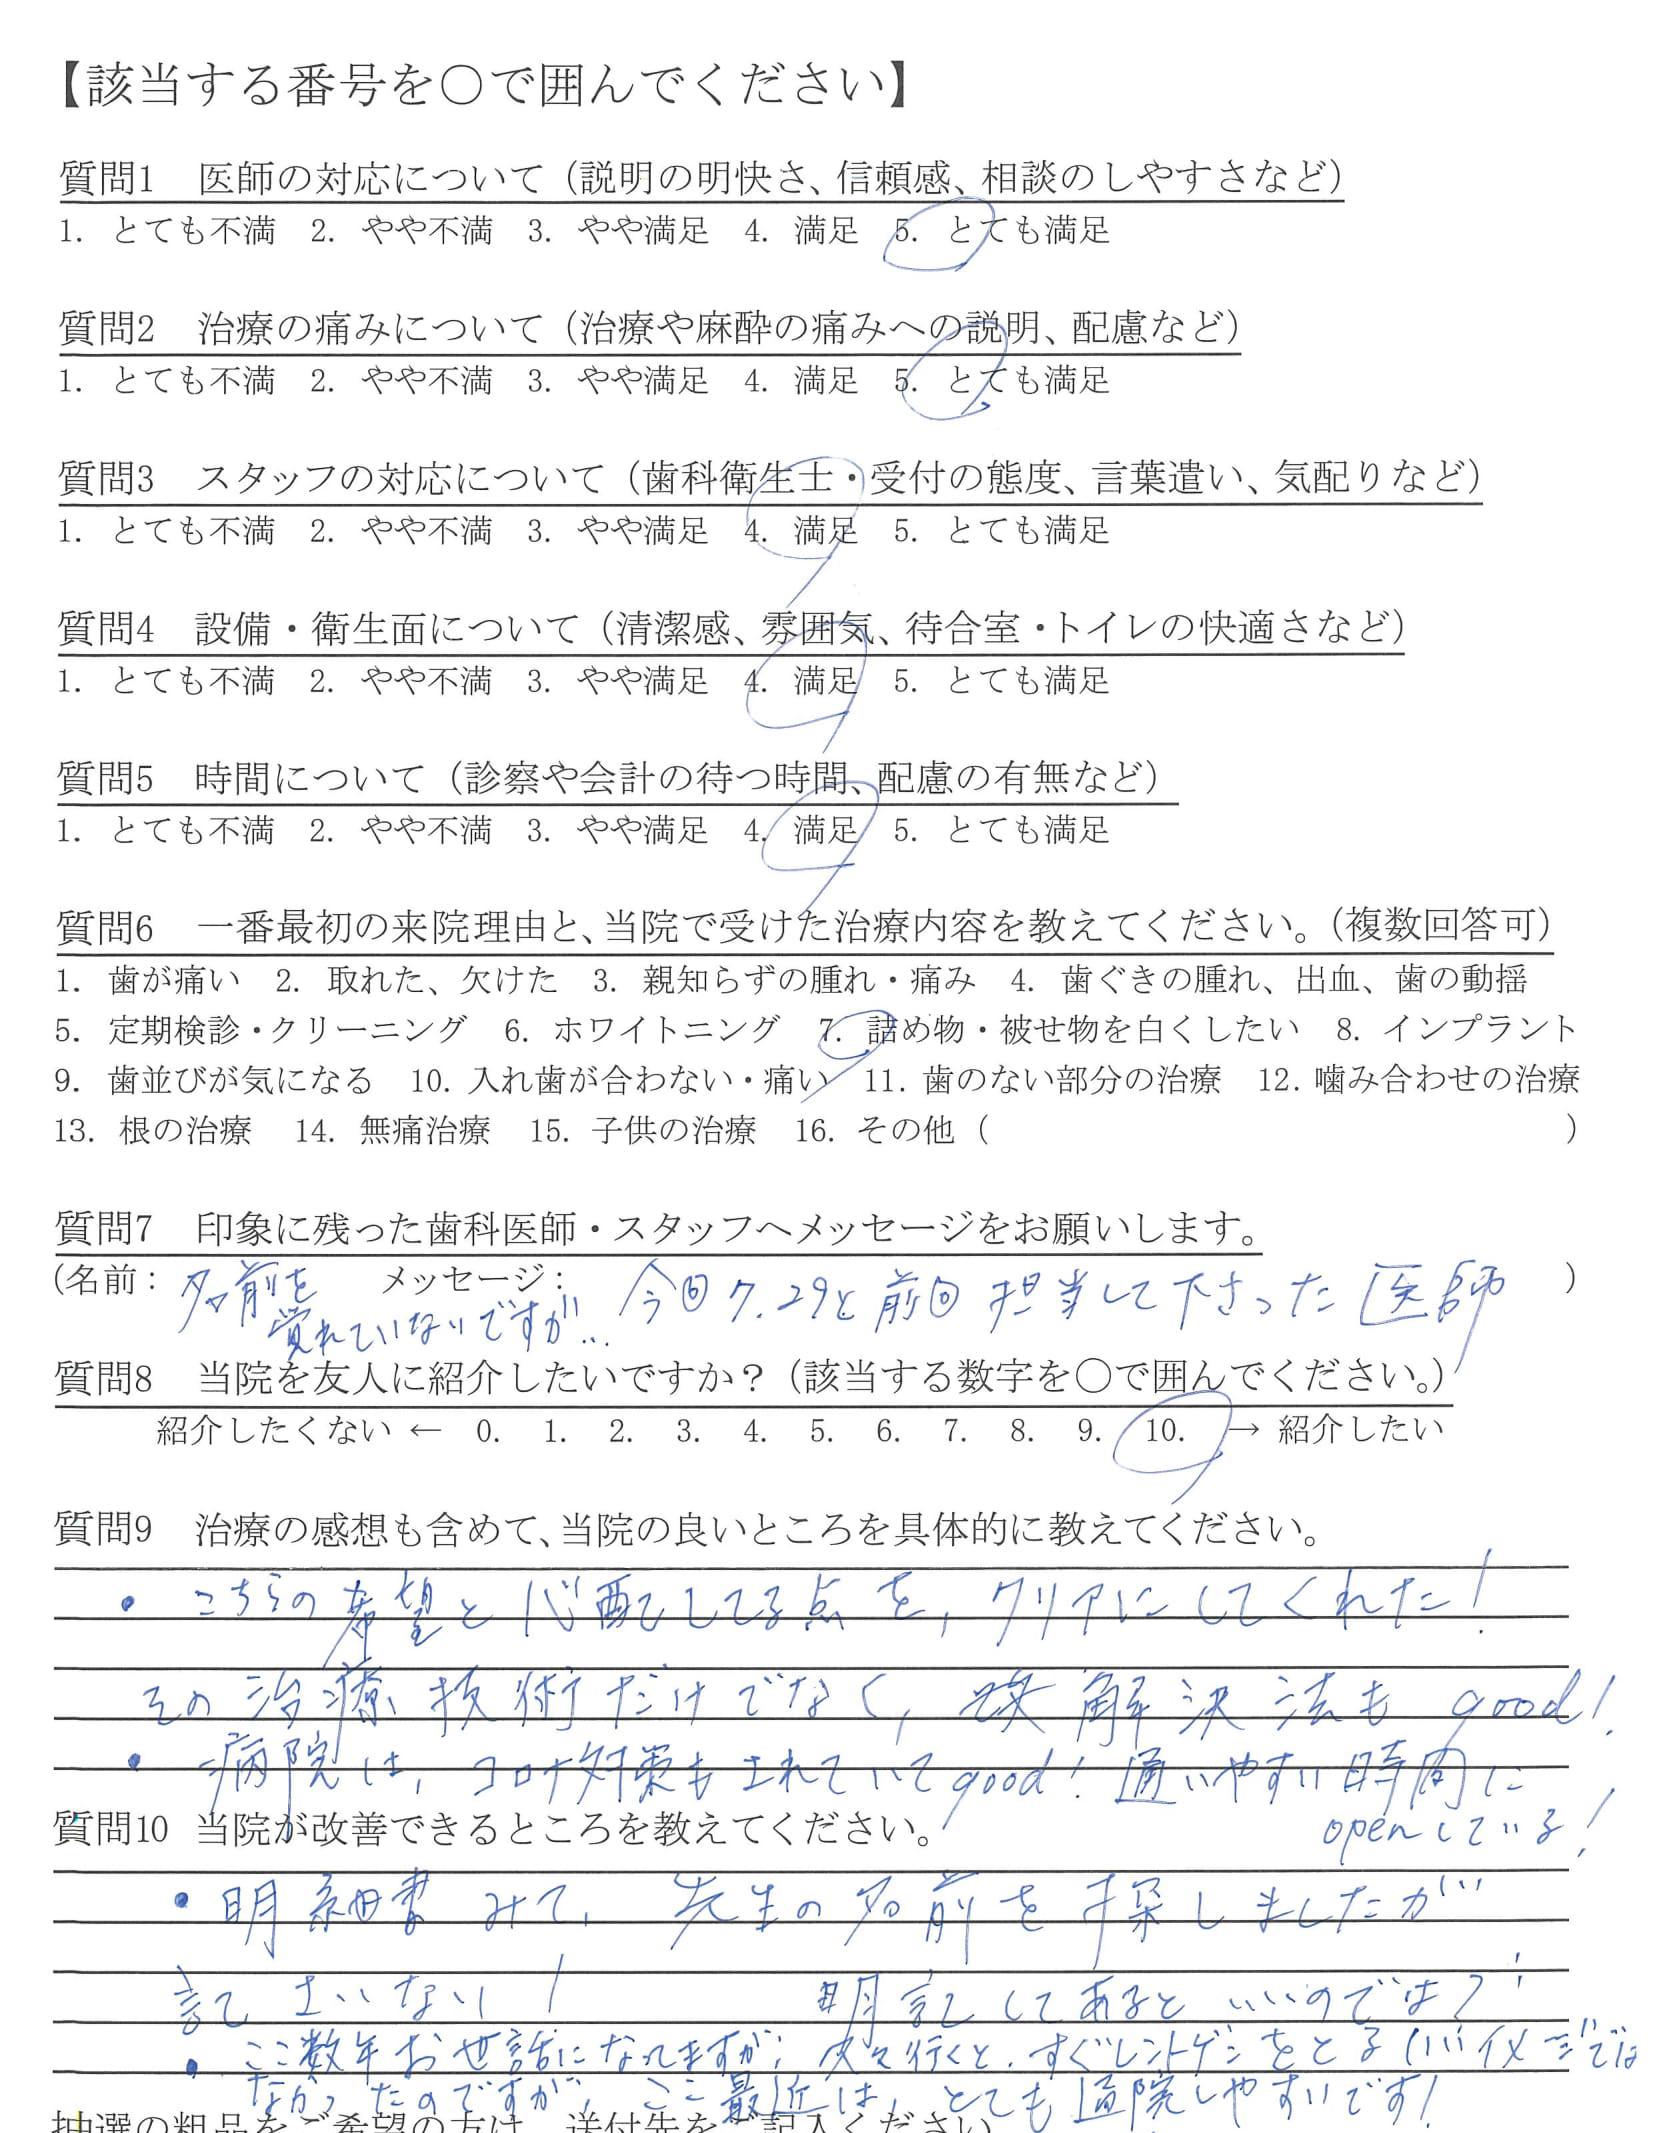 【該当する番号を○で囲んでください】
質問1　医師の対応について（説明の明快さ、信頼感、相談のしやすさなど）
1. とても不満　2. やや不満　3. やや満足　4. 満足　5. とても満足
質問2　治療の痛みについて（治療や麻酔の痛みへの説明、配慮など）
1. とても不満　2. やや不満　3. やや満足　4. 満足　5. とても満足
質問3　スタッフの対応について（歯科衛生士・受付の態度、言葉遣い、気配りなど）
1. とても不満　2. やや不満　3. やや満足　4. 満足　5. とても満足
質問4　設備・衛生面について（清潔感、雰囲気、待合室・トイレの快適さなど）
1. とても不満　2. やや不満　3. やや満足　4. 満足　5. とても満足
質問5　時間について（診察や会計の待つ時間、配慮の有無など）
1. とても不満　2. やや不満　3. やや満足　4. 満足　5. とても満足
質問6　一番最初の来院理由と、当院で受けた治療内容を教えてください。（複数回答可）
1. 歯が痛い　2. 取れた、欠けた　3. 親知らずの腫れ・痛み　4. 歯ぐきの腫れ、出血、歯の動揺
5. 定期検診・クリーニング　6. ホワイトニング　7. 詰め物・被せ物を白くしたい　8. インプラント
9. 歯並びが気になる　10. 入れ歯が合わない・痛い　11. 歯のない部分の治療　12. 噛み合わせの治療
13. 根の治療　14. 無痛治療　15. 子供の治療　16. その他（　）
質問7　印象に残った歯科医師・スタッフへメッセージをお願いします。
（名前： 名前を　メッセージ： 今回7.29と前回担当して下さった医師）
覚れていないですが…
質問8　当院を友人に紹介したいですか？（該当する数字を○で囲んでください。）
紹介したくない ← 0. 1. 2. 3. 4. 5. 6. 7. 8. 9. 10. → 紹介したい
質問9　治療の感想も含めて、当院の良いところを具体的に教えてください。
・こちらの希望と心配してる点を, クリアにしてくれた!
その治療技術だけでなく, 解決法も good!
・病院は, コロナ対策もされていて good! 通いやすい時間に
openしている!
質問10　当院が改善できるところを教えてください。
・明細書みて, 先生の名前を探しましたが…
記て ない! 明記してあるといいのでは?
・ここ数年お世話になってますが, 行くと, すぐレントゲンをとる いいイメージでは
なかったのですが, ここ最近は, とても通院しやすいです!
抽選の粗品をご希望の方は、送付先をご記入ください